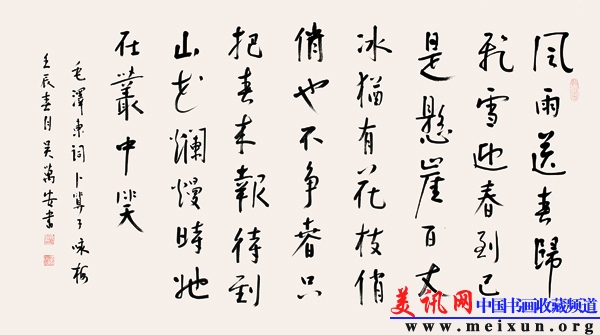 風雨送春歸
飛雪迎春到已
是懸崖百丈
冰猶有花枝俏
俏也不争春只
把春来報待到
山花爛熳時她
在叢中笑
毛澤東詞卜算子咏梅
壬辰春月吴萬安書
美讯网 中国书画收藏频道
www.meixun.org